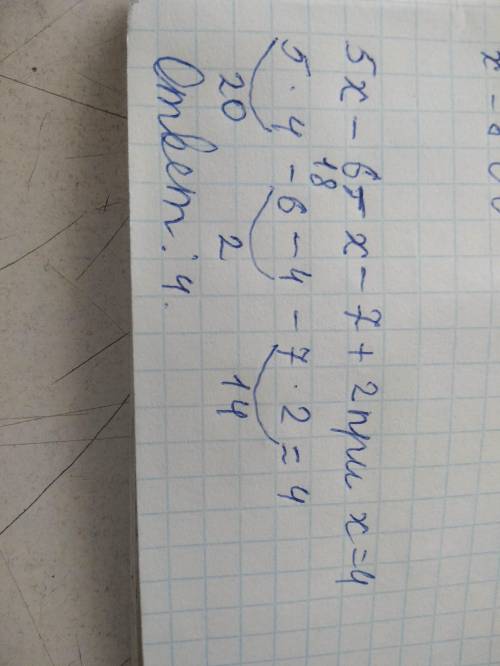 5x - 6 - x - 7 + 2 при x = 4
18
5 · 4 - 6 - 4 - 7 · 2 = 4
20 2 14
Ответ: 4.